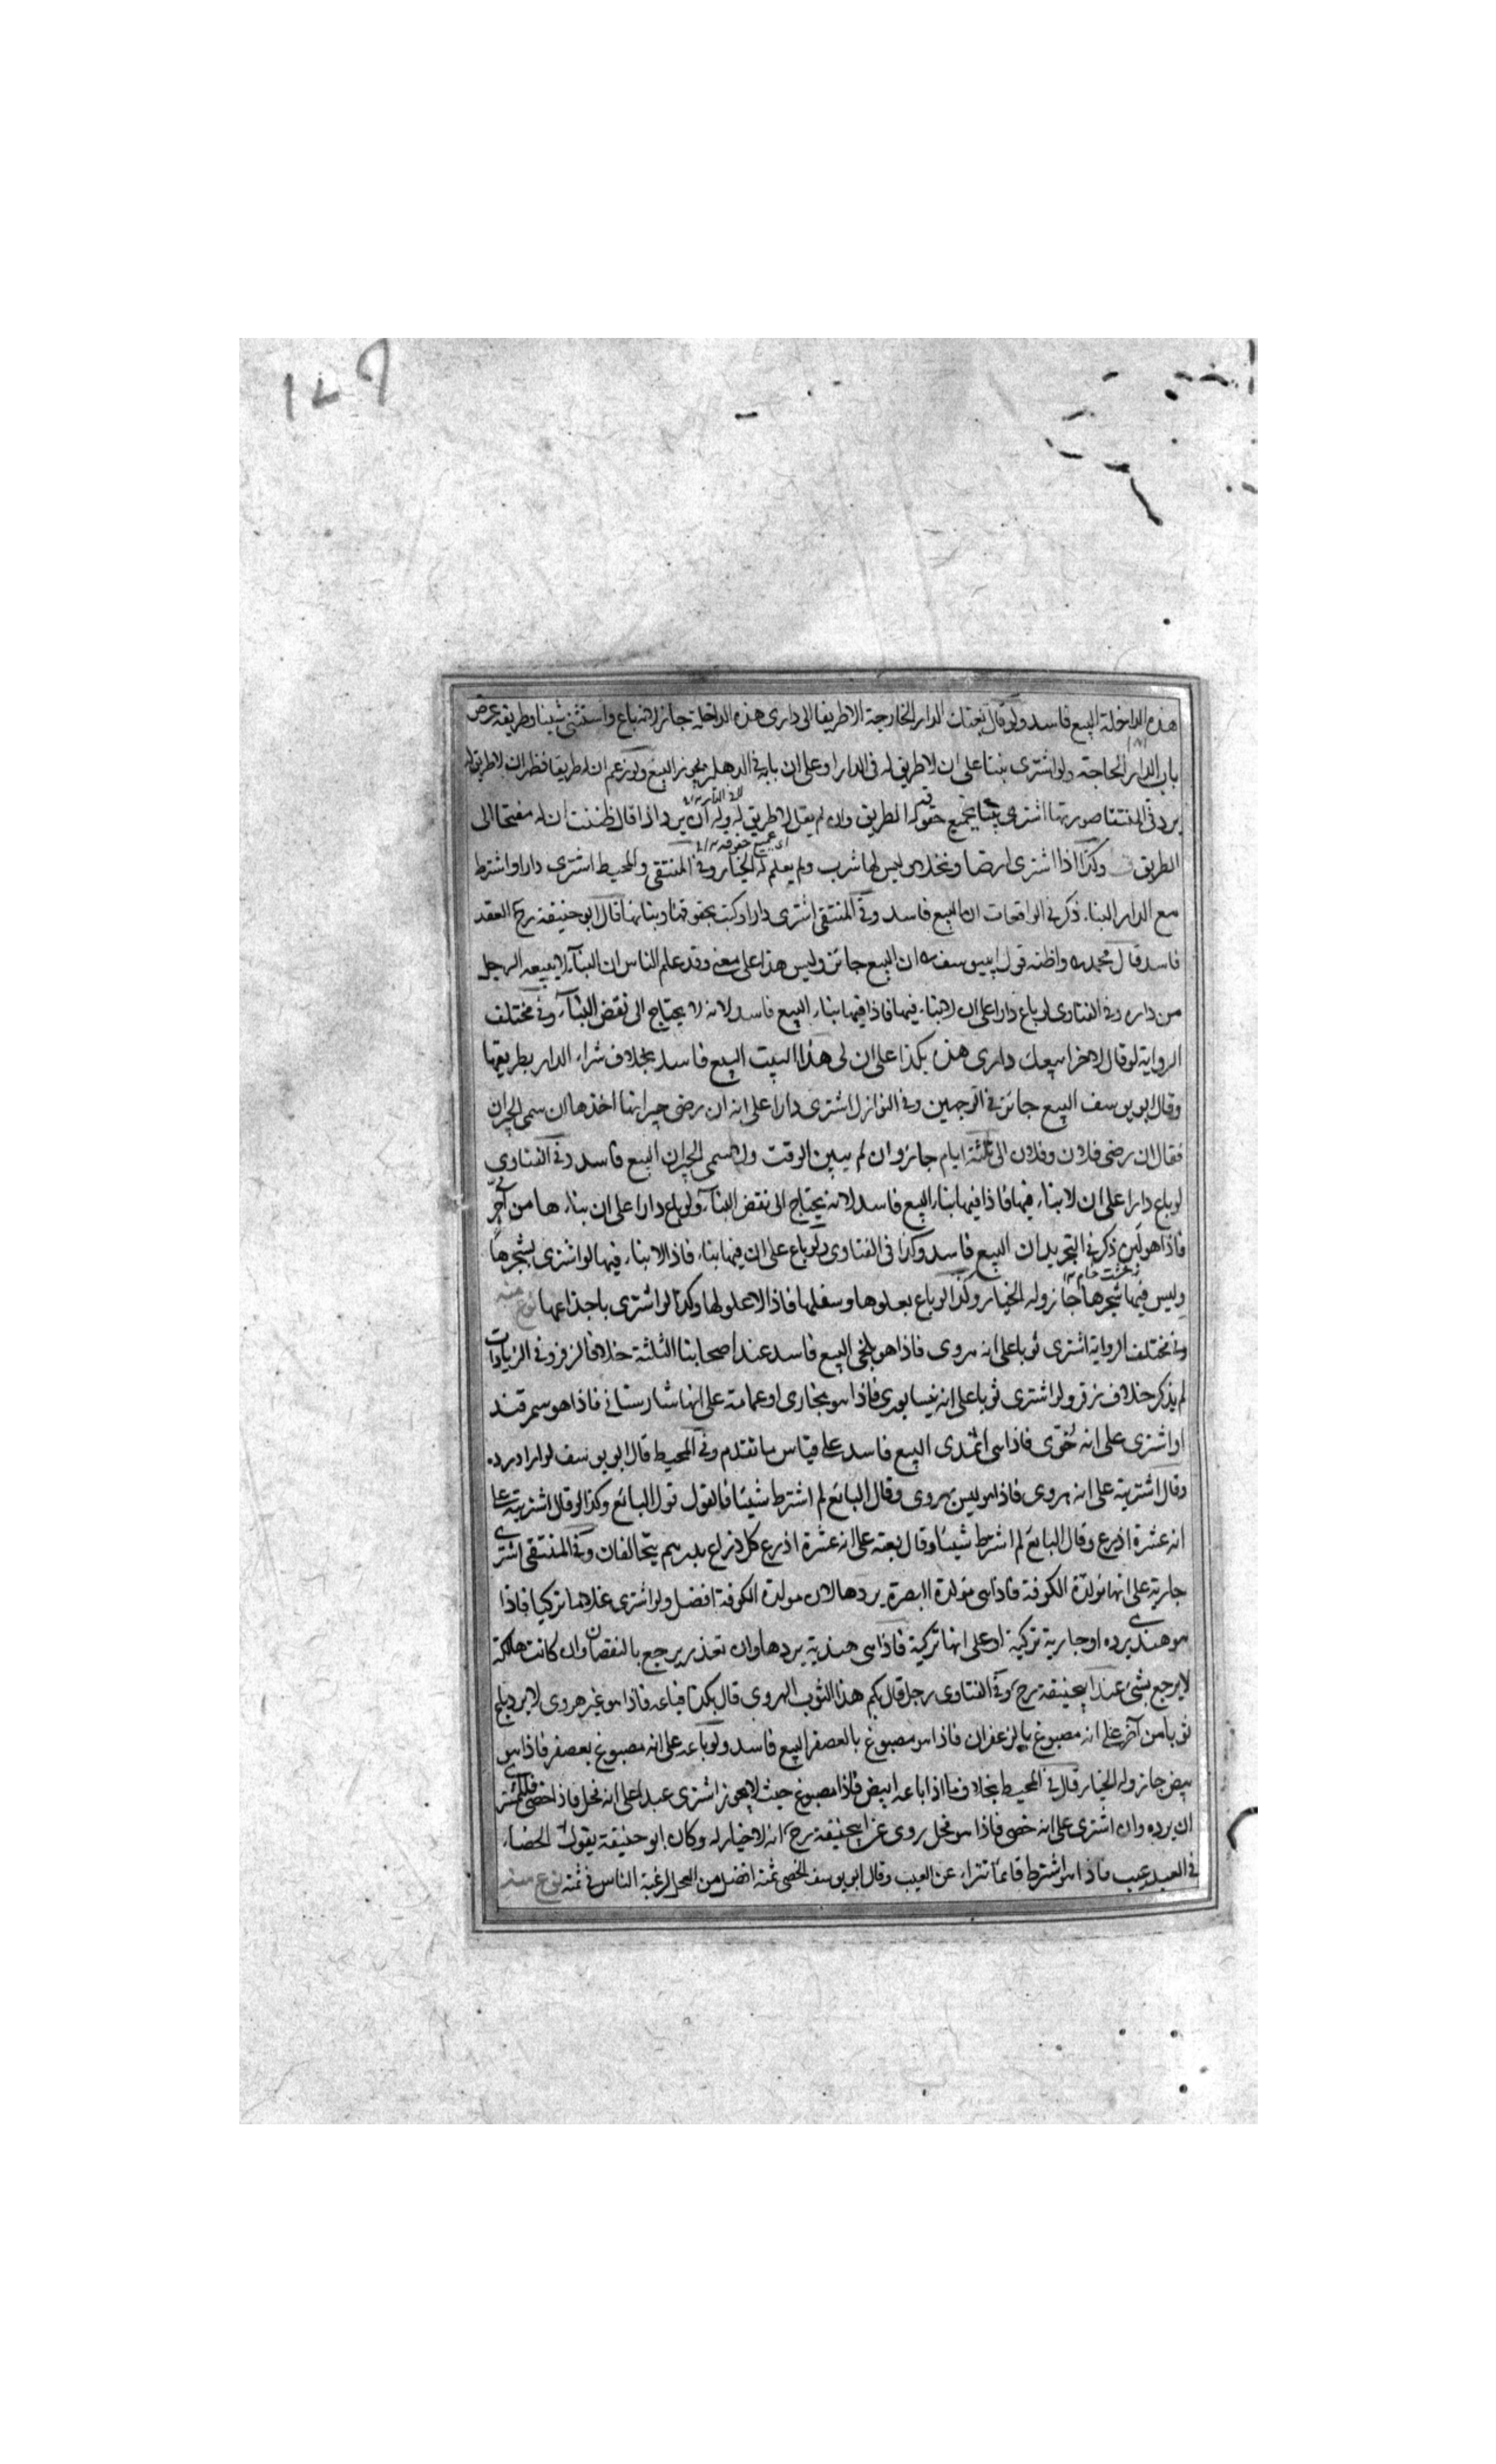 هذه الداخلة البيع فاسد ولو قال بعتك الدار الخارجة الا طريقا الى دارى هذه الداخلة جاز لانه باع واستثنى شيئا وطريقه عرض
باب الدار الخارجة ولو اشترى بيتا على ان لا طريق له فى الدار او على ان بابه فى الدهليز يجوز البيع ولو زعم ان له طريقا فظهر ان لا طريق له
يرد فى المنتقا صورتها اشترى بيتا بجميع حقوقه الطريق وان لم يقل لا طريق له وله ان يرد اذا قال ظننت ان له مفتحا الى
الطريق وكذا اذا اشترى ارضا ونخلا وليس لها شرب ولم يعلم له الخيار وفى المنتقى والمحيط اشترى دارا واشترط
مع الدار البناء ذكر فى الواقعات ان البيع فاسد وفى المنتقى اشترى دارا وكتب بحقوقها وبنائها قال ابو حنيفة رح العقد
فاسد قال محمد واظنه قول ابى يوسف ان البيع جائز وليس هذا على معنى وقد علم الناس ان البناء لا يبيعه الرجل
من داره وفى الفتاوى لو باع دارا على ان لا بناء فيها فاذا فيها بناء البيع فاسد لانه لا يحتاج الى نقض البناء وفى مختلف
الرواية لو قال لاخر ابيعك دارى هذه بكذا على ان لى هذا البيت البيع فاسد بخلاف شراء الدار بطريقها
وقال ابو يوسف البيع جائز فى الوجهين وفى النوازل اشترى دارا على انه ان رضى جيرانها اخذها ان سمى الجيران
فقال ان رضى فلان وفلان الى ثلثة ايام جاز وان لم يبين الوقت ولا سمى الجيران البيع فاسد وفى الفتاوى
لو باع دارا على ان لا بناء فيها فاذا فيها بناء البيع فاسد لانه يحتاج الى نقض البناء ولو باع دارا على ان بناءها من آجر
فاذا هو لبن ذكر فى التجريد ان البيع فاسد وكذا فى الفتاوى ولو باع على ان فيها بناء فاذا لا بناء فيها لو اشترى بشجرها
وليس فيها شجرها جاز وله الخيار وكذا لو باع بعلوها وسفلها فاذا لا علو لها وكذا لو اشترى باجذاعها نوع منه
وفى مختلف الرواية اشترى ثوبا على انه هروى فاذا هو بلخى البيع فاسد عند اصحابنا الثلثة خلافا لزفر وفى الزيادات
لم يذكر خلاف زفر ولو اشترى ثوبا على انه نيسابورى فاذا هو بخارى او عمامة على انها شارستانى فاذا هو سمرقند
او اشترى على انه فاذا هى البيع فاسد على قياس ما تقدم وفى المحيط قال ابو يوسف لو اراد رده
وقال اشتريته على انه هروى فاذا هو ليس بهروى وقال البائع لم اشترط شيئا فالقول قول البائع وكذا لو قال اشتريته على
انه عشرة اذرع وقال البائع لم اشرط شيئا وقال بعته على انه عشرة اذرع كل ذراع بدرهم يتحالفان وفى المنتقى اشترى
جارية على انها مولدة الكوفة فاذا هى مولدة البصرة يردها لان مولدة الكوفة افضل ولو اشترى غلاما تركيا فاذا
هو هندى يرده او جارية تركية او على انها تركية فاذا هى هندية يردها وان تعذر يرجع بالنقصان وان كانت هالكة
لا يرجع بشئ عند ابيحنيفة رح وفى الفتاوى رجل قال بكم هذا الثوب الهروى قال بكذا فباعه فاذا هو غير هروى لا يرد باع
ثوبا من آخر على انه مصبوغ بالزعفران فاذا هو مصبوغ بالعصفر البيع فاسد ولو باعه على انه مصبوغ بعصفر فاذا هو
ابيض جاز وله الخيار قال فى المحيط بخلاف ما اذا باعه ابيض فاذا مصبوغ حيث لا يجوز اشترى عبدا على انه فحل فاذا خصى فللمشترى
ان يرده وان اشترى على انه خصى فاذا هو فحل روى عن ابيحنيفة رح انه لا خيار له وكان ابو حنيفة يقول الخصاء
فى العبد عيب فاذا اشترط قائما تبراء عن العيب وقال ابو يوسف الخصى ثمنه افضل من الفحل لرغبة الناس فى ثمنه نوع منه